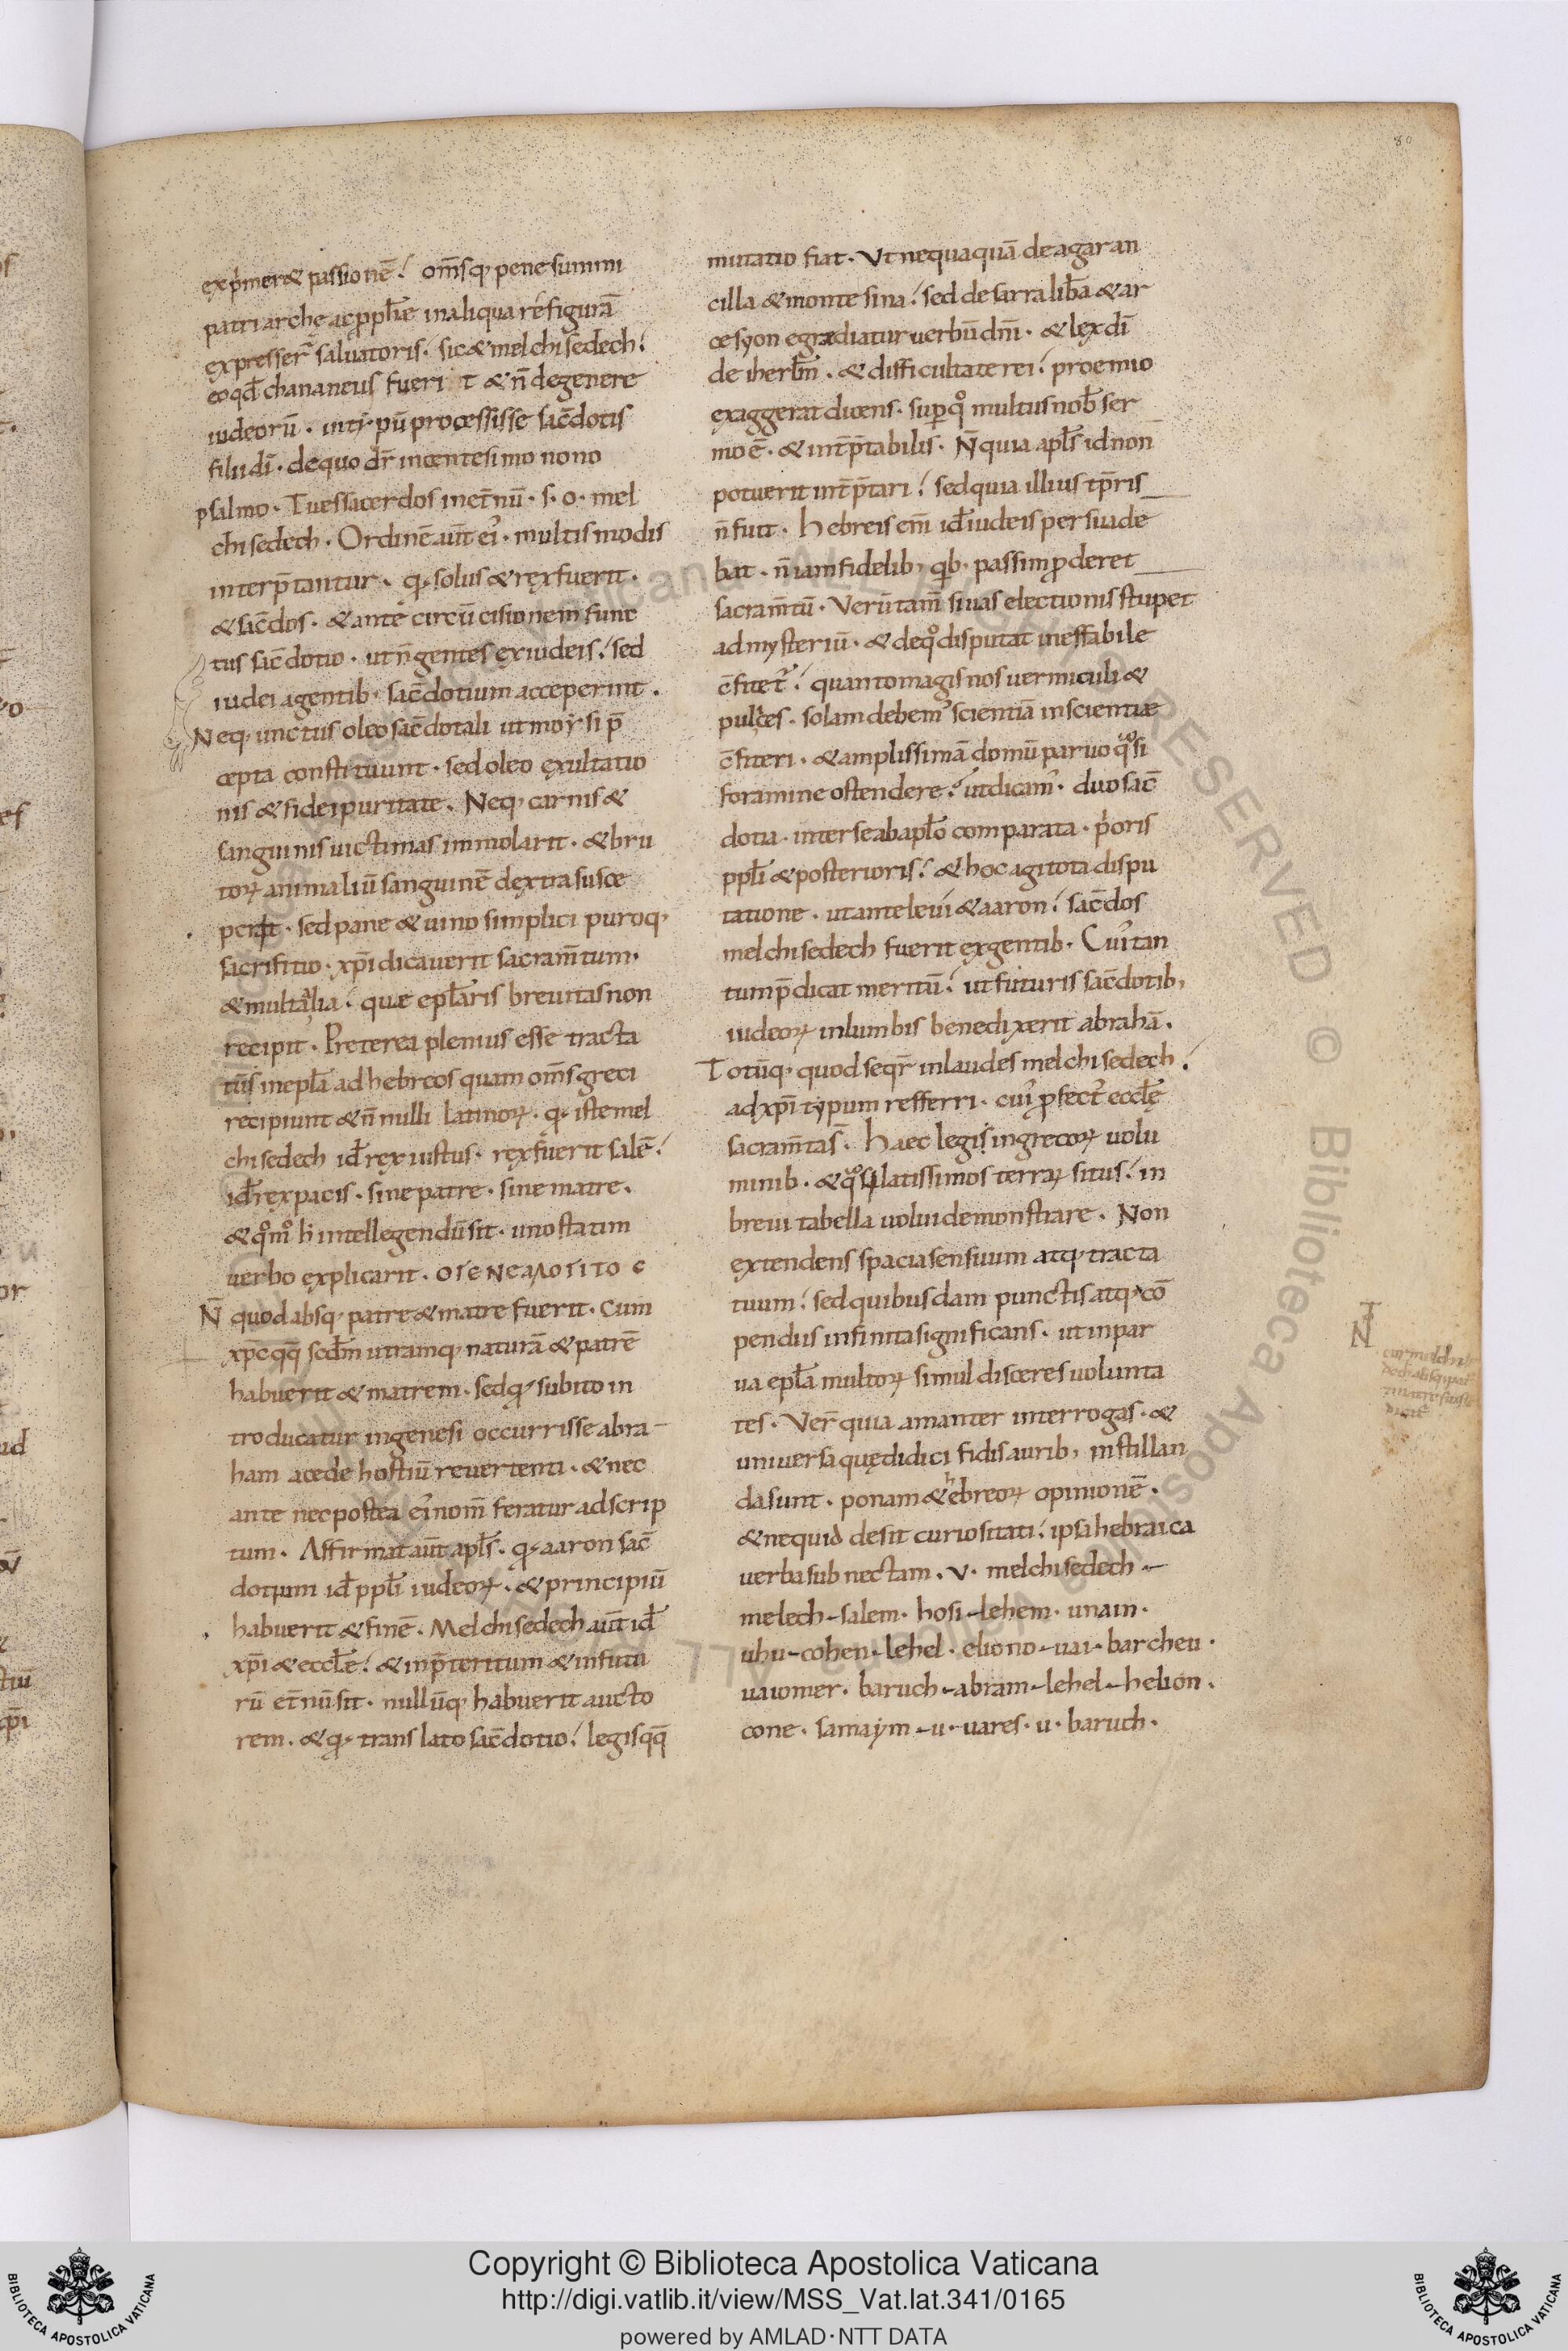 80
exp̄meret passionē. om̄sq; pene summi
patriarchę ac ꝓphē in aliqua re figurā
expresser̄ saluatoris. sic et melchisedech.
eo qđ chananeus fuerit et n̄ de genere
iudeorū. in typū processisse sac̄dotis
filii dī. de quo dr̄ in centesimo nono
psalmo. Tu es sacerdos in et̄nū. s. o. mel
chisedech. Ordinē aūt eī. multis modis
interp̄tantur. qđ solus et rex fuerit.
et sac̄dos. et ante circūcisionem func
tus sac̄dotio. ut n̄ gentes ex iudeis. sed
iudei a gentib; sac̄dotium acceperint.
Neq; unctus oleo sac̄dotali ut moysi p̄
cepta constituunt. sed oleo exultatio
nis et fidei puritate. Neq; carnis et
sanguinis uictimas immolarit. et bru
toꝝ animaliū sanguinē dextra susce
perit. sed pane et uino simplici puroq;
sacrifitio. xp̄i dicauerit sacram̄tum.
et multa alia. quæ ep̄laris breuitas non
recipit. Preterea plenius esse tracta
tūs in ep̄la ad hebreos quam om̄s greci
recipiunt et n̄nulli latinoꝝ. qđ iste mel
chisedech id̄ rex iustus. rex fuerit salē.
id̄ rex pacis. sine patre. sine matre.
et qm̊o h̄ intellegendū sit. uno statim
uerbo explicarit.
N̄ quod absq; patre et matre fuerit. Cum
xp̄c qq̄ scđm utramq; naturā et patrē
habuerit et matrem. sed qđ subito in
troducatur in genesi occurrisse abra-
ham a cede hostiū reuertenti. et nec
ante nec postea eī nom̄ feratur adscrip
tum. Affirmat aūt apl̄s. qđ aaron sac̄
dotium id̄ ppl̄i iudeoꝝ. et principiū
habuerit et finē. Melchisedech aūt id̄
xp̄i et eccl̄e. et in p̄teritum et in futu
rū et̄nū sit. nullūq; habuerit aucto
rem. et qđ translato sac̄dotio. legis qq̄
mutatio fiat. Ut nequaquā de agar an
cilla et monte sina. sed de sarra lib̄a et ar
ce syon egrædiatur uerbū dnī. et lex dī
de iherl̄m. et difficultate rei. proemio
exaggerat dicens. sup̱ qo multus nob̄ ser
mo ē. et int̄p̄tabilis. N̄ quia apl̄s id non
potuerit int̄p̄tari. sed quia illius tp̄ris
n̄ fuit. hebreis em̄ id̄ iudeis persuade
bat. n̄ iam fidelib; qb; passim ꝓderet
sacram̄tū. Verūtam̄ si uas electionis stupet
ad mysteriū. et de qo disputat ineffabile
c̄fitet̄. quanto magis nos uermiculi et
pulices. solam debem; scientiā inscientiæ
c̄fiteri. et amplissimā domū paruo qͣsi
foramine ostendere. ut dicam;. duo sac̄
dotia. inter se ab apl̄o comparata. p̄oris
ppl̄i et posterioris. et hoc agit tota dispu
tatione. ut ante leui et aaron. sac̄dos
melchisedech fuerit ex gentib;. Cuī tan
tum p̄dicat meritū. ut futuris sac̄dotib;
iudeoꝝ in lumbis benedixerit abrahā.
Totūq; quod seqr̄ in laudes melchisedech.
ad xp̄i typum refferri. cuī ꝓfect; eccl̄ę
sacram̄ta s̄. Haec legi in grecoꝝ uolu
minib;. et qͣsi latissimos terraꝝ situs. in
breui tabella uolui demonstrare. Non
extendens spacia sensuum atq; tracta
tuum. sed quibusdam punctis atq; cō
pendiis infinita significans. ut in par
ua ep̄la multoꝝ simul disceres uolunta
tes. Ver̄ quia amanter interrogas. et
uniuersa quę didici fidis aurib; instillan
da sunt. ponam et hebreoꝝ opinionē.
et nequid desit curiositati. ipsa hebraica
uerba subnectam. v. melchisedech-
melech-salem. hosi-lehem. unain.
uhu-cohen-lehel. eliono-uai. barcheu.
uaiomer. baruch-abram-lehel-helion.
cone. samaym-u-uares. u. baruch.
N̄
cur melchise
dech absq; pat
Copyright © Biblioteca Apostolica Vaticana
http://digi.vatlib.it/view/MSS_Vat.lat.341/0165
powered by AMLAD·NTT DATA
BIBLIOTECA APOSTOLICA VATICANA
BIBLIOTECA APOSTOLICA VATICANA